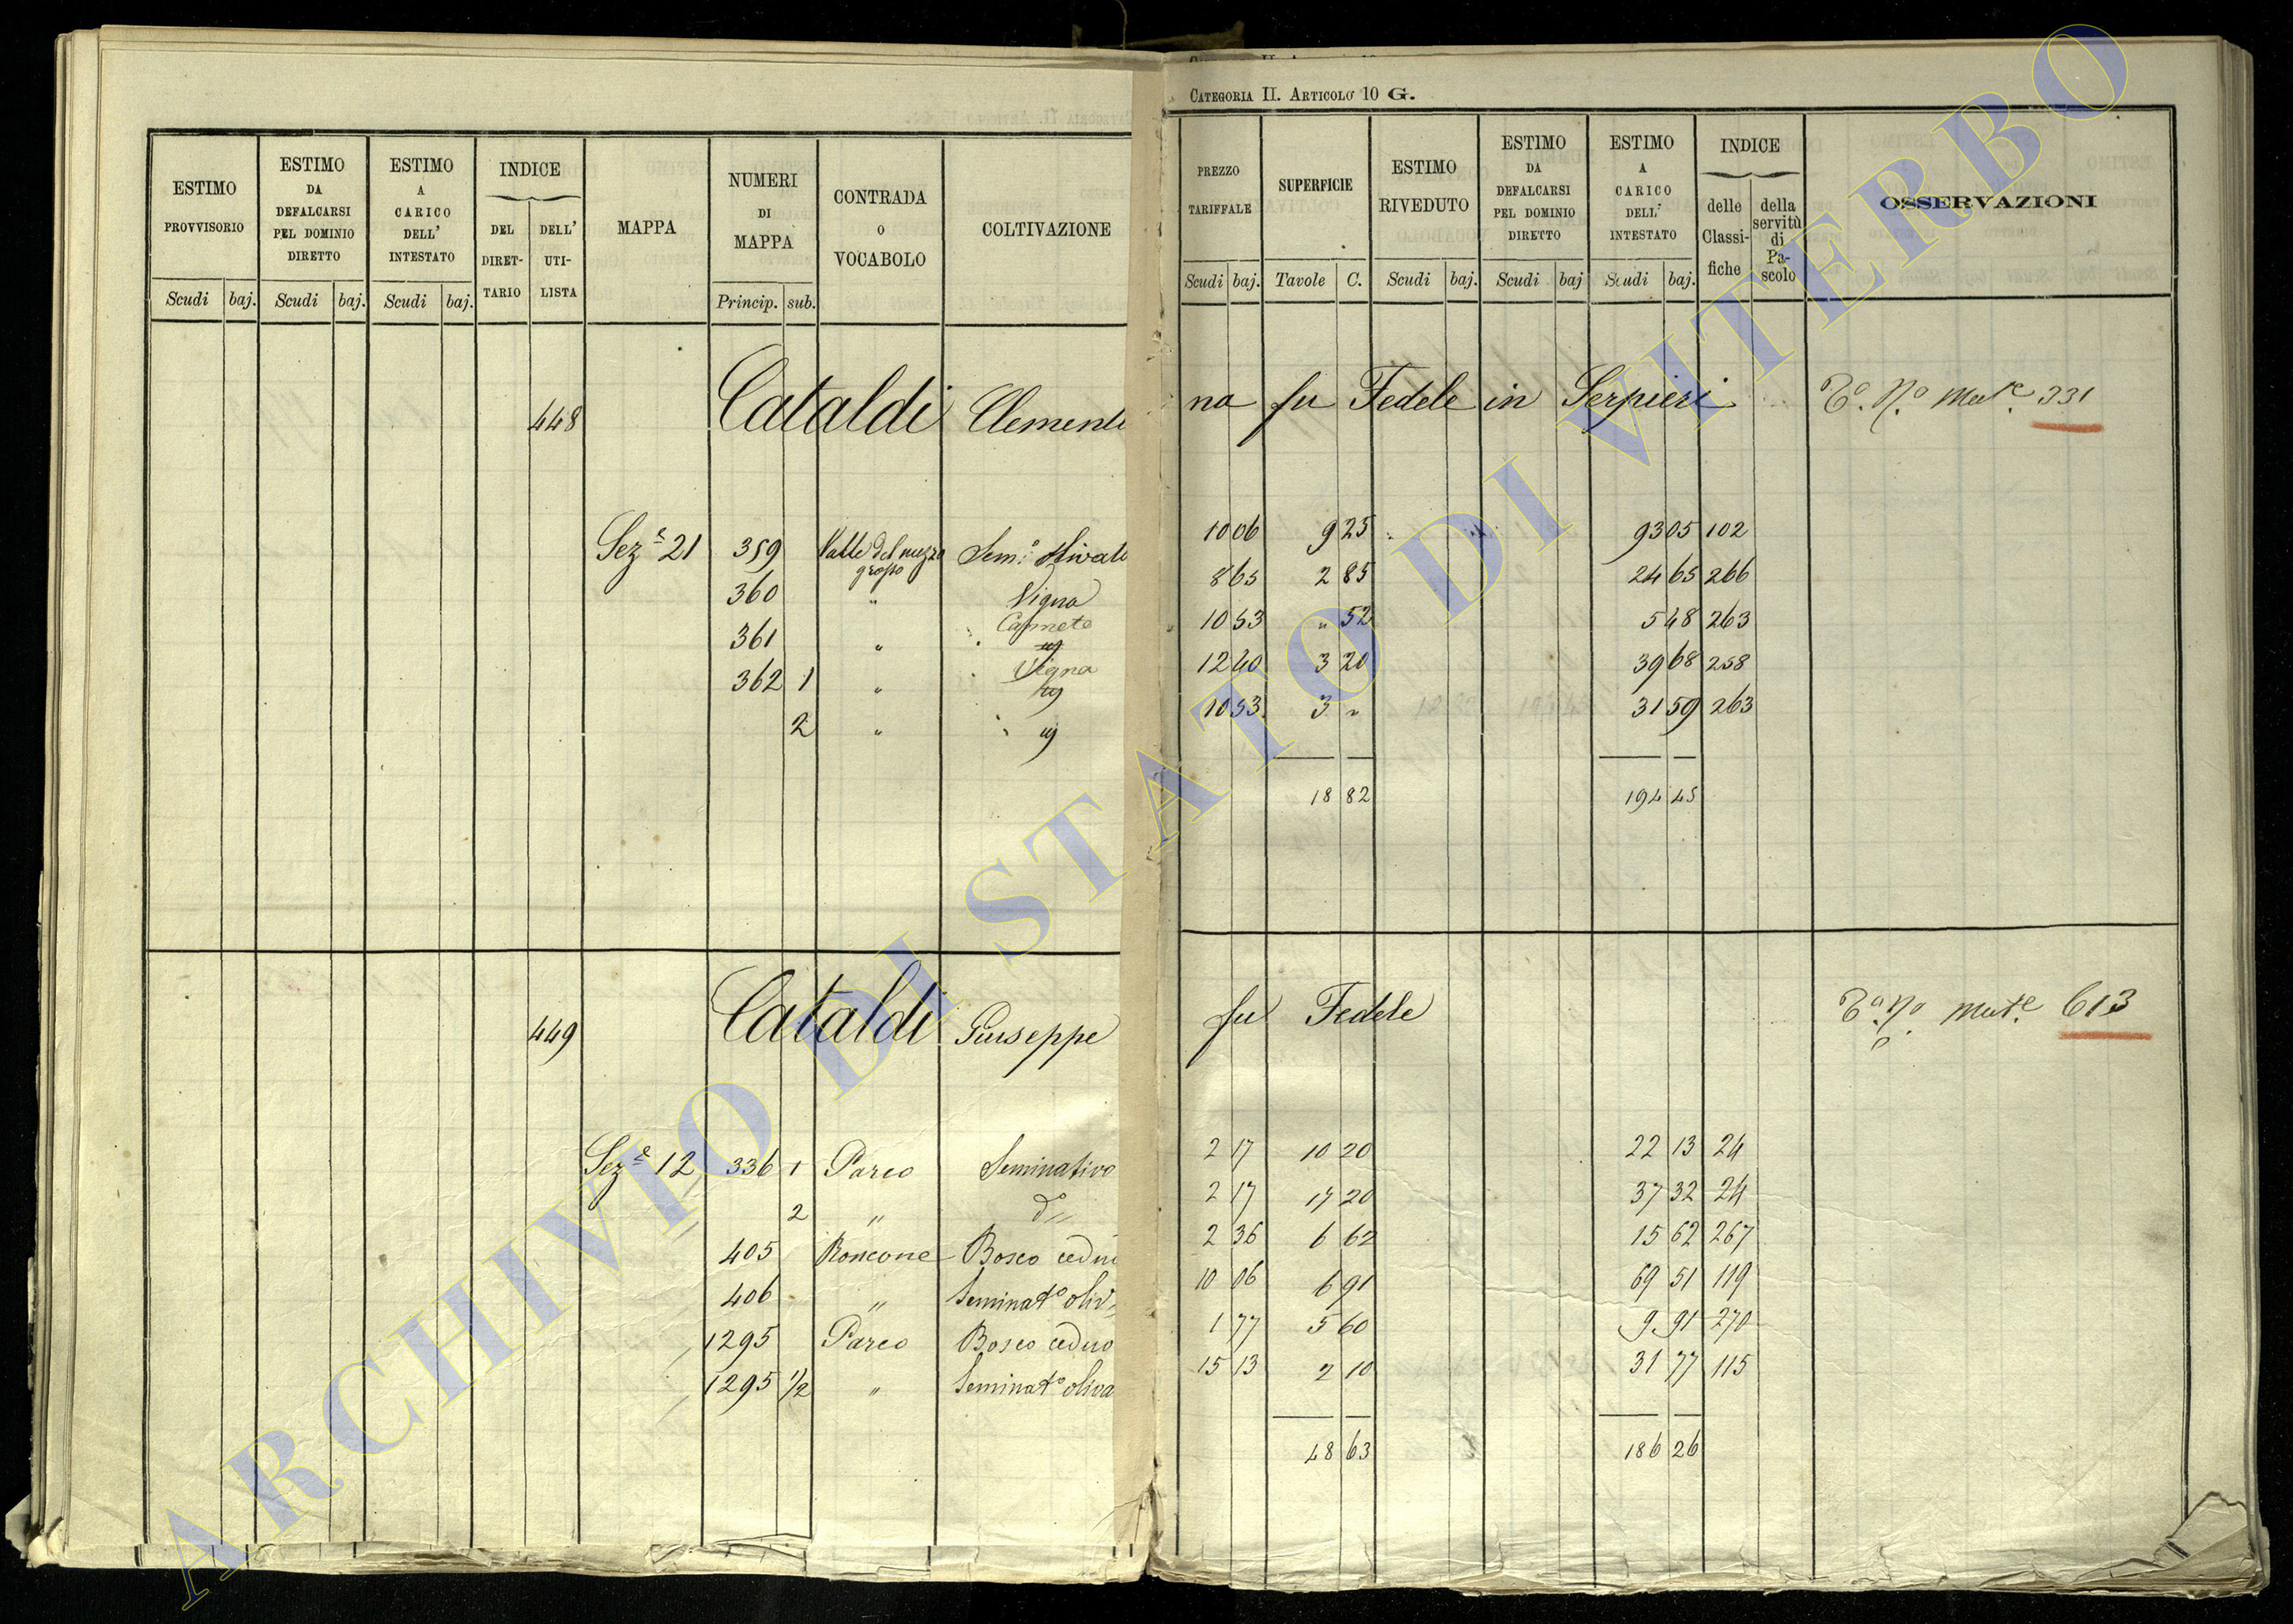 CATEGORIA II. ARTICOLO 10 G.
ESTIMO PROVVISORIO Scudi baj.
ESTIMO DA DEFALCARSI PEL DOMINIO DIRETTO Scudi baj.
ESTIMO A CARICO DELL' INTESTATO Scudi baj.
INDICE DEL DIRET-TARIO DELL' UTI-LISTA
MAPPA
NUMERI DI MAPPA Princip. sub.
CONTRADA O VOCABOLO
COLTIVAZIONE
PREZZO TARIFFALE Scudi baj.
SUPERFICIE Tavole C.
ESTIMO RIVEDUTO Scudi baj.
ESTIMO DA DEFALCARSI PEL DOMINIO DIRETTO Scudi baj
ESTIMO A CARICO DELL' INTESTATO Scudi baj.
INDICE delle Classi-fiche della servitù di Pa-scolo
OSSERVAZIONI
448 Cataldi Clementi na fu Fedele in Serpieri 331
Sez.e 21 359 Valle del mezzo grosso Sem.o Olivato 10 06 9 25 93 05 102
360 " Vigna 8 65 2 85 24 65 266
361 " Canneto 10 53 " 52 5 48 263
362 1 " Vigna 12 40 3 20 39 68 258
2 " 10 53 3 " 31 59 263
18 82 194 45
449 Cataldi Giuseppe fu Fedele 613
Sez.e 12 336 1 Parco Seminativo 2 17 10 20 22 13 24
2 " d.o 2 17 17 20 37 32 24
405 Roncone Bosco ceduo 2 36 6 62 15 62 267
406 " Seminat.o oliv 10 06 6 91 69 51 119
1295 Parco Bosco ceduo 1 77 5 60 9 91 270
1295 1/2 " Seminat.o oliva 15 13 2 10 31 77 115
48 63 186 26
ARCHIVIO DI STATO DI VITERBO